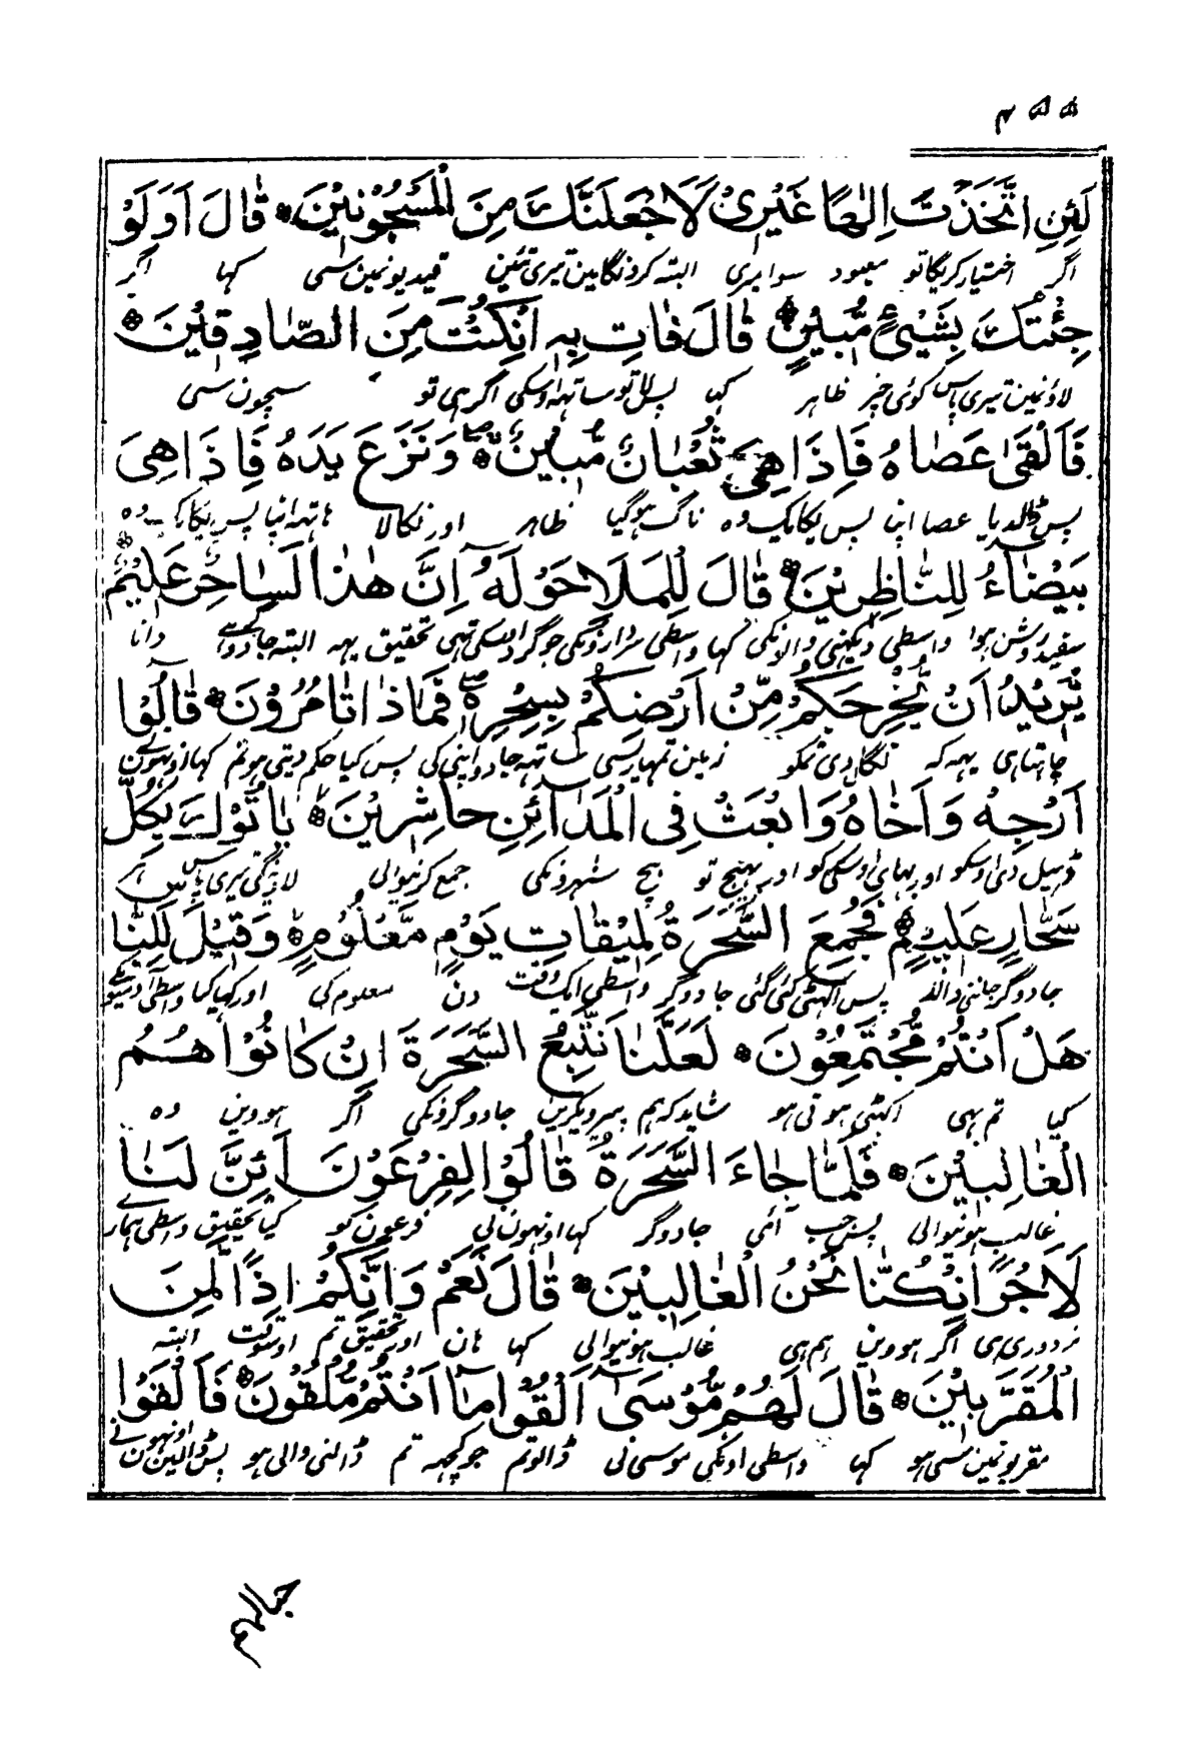 ۵۵۴
لَئِنِ اتَّخَذْتَ اِلٰهًا غَيْرِيْ لَاَجْعَلَنَّكَ مِنَ الْمَسْجُوْنِيْنَ قَالَ اَوَلَوْ
اگر اختیار کریگا تو معبود سوا میری البتہ کرونگا مین تیری تئین قیدیونمین سی کہا اگر
جِئْتُكَ بِشَيْءٍ مُّبِيْنٍ قَالَ فَاتِ بِهٖ اِنْ كُنْتَ مِنَ الصَّادِقِيْنَ
لاؤنمین تیری پاس کوئی چیز ظاہر کہا پس لا تو ساتھ اوسکی اگر ہی تو سچون سی
فَاَلْقٰى عَصَاهُ فَاِذَا هِيَ ثُعْبَانٌ مُّبِيْنٌ وَنَزَعَ يَدَهٗ فَاِذَا هِيَ
پس ڈالدیا عصا اپنا پس یکایک وہ ناگ ہو گیا ظاہر اور نکالا ہاتہہ اپنا پس یکایک وہ
بَيْضَاءُ لِلنَّاظِرِيْنَ قَالَ لِلْمَلَاِ حَوْلَهٗ اِنَّ هٰذَا لَسَاحِرٌ عَلِيْمٌ
سفید روشن ہوا واسطی دیکہنی والونکی کہا واسطی سردارونکی جو گرد اوسکی تہی تحقیق یہہ البتہ جادوگر ہے دانا
يُّرِيْدُ اَنْ يُّخْرِجَكُمْ مِّنْ اَرْضِكُمْ بِسِحْرِهٖ فَمَاذَا تَاْمُرُوْنَ قَالُوْا
چاہتا ہی یہہ کہ نکال دی تمکو زمین تمہاری سی ساتہہ جادو اپنی کی پس کیا حکم دیتی ہو تم کہا اونہون نے
اَرْجِهْ وَاَخَاهُ وَابْعَثْ فِي الْمَدَآئِنِ حَاشِرِيْنَ يَاْتُوْكَ بِكُلِّ
ڈہیل دی اوسکو اور بہائی اوسکی کو اور بہیج تو بیچ شہرونکی جمع کرنیوالی لاوینگی تیری پاس ہر
سَحَّارٍ عَلِيْمٍ فَجُمِعَ السَّحَرَةُ لِمِيْقَاتِ يَوْمٍ مَّعْلُوْمٍ وَقِيْلَ لِلنَّا
جادوگر جاننی والا پس اکہٹی کئی گئی جادوگر واسطی ایک وقت دن معلوم کی اور کہا گیا واسطی
هَلْ اَنْتُمْ مُّجْتَمِعُوْنَ لَعَلَّنَا نَتَّبِعُ السَّحَرَةَ اِنْ كَانُوْا هُمُ
کیا تم بہی اکہٹی ہوتی ہو شاید کہ ہم پیروی کرین جادوگرونکی اگر ہووین وہ
الْغَالِبِيْنَ فَلَمَّا جَاءَ السَّحَرَةُ قَالُوْا لِفِرْعَوْنَ اَئِنَّ لَنَا
غالب ہونیوالی پس جب آئی جادوگر کہا اونہون نی فرعون کو کیا تحقیق واسطی ہماری
لَاَجْرًا اِنْ كُنَّا نَحْنُ الْغَالِبِيْنَ قَالَ نَعَمْ وَاِنَّكُمْ اِذًا لَّمِنَ
مزدوری ہی اگر ہووین ہم ہی غالب ہونیوالی کہا ہان اور تحقیق تم اوسوقت البتہ
الْمُقَرَّبِيْنَ قَالَ لَهُمْ مُّوْسٰى اَلْقُوْا مَا اَنْتُمْ مُّلْقُوْنَ فَاَلْقَوْا
مقربونمین سی ہو کہا واسطی اونکی موسی نی ڈالو تم جو کچہہ تم ڈالنی والی ہو پس ڈالین اونہون نے
حبالهم